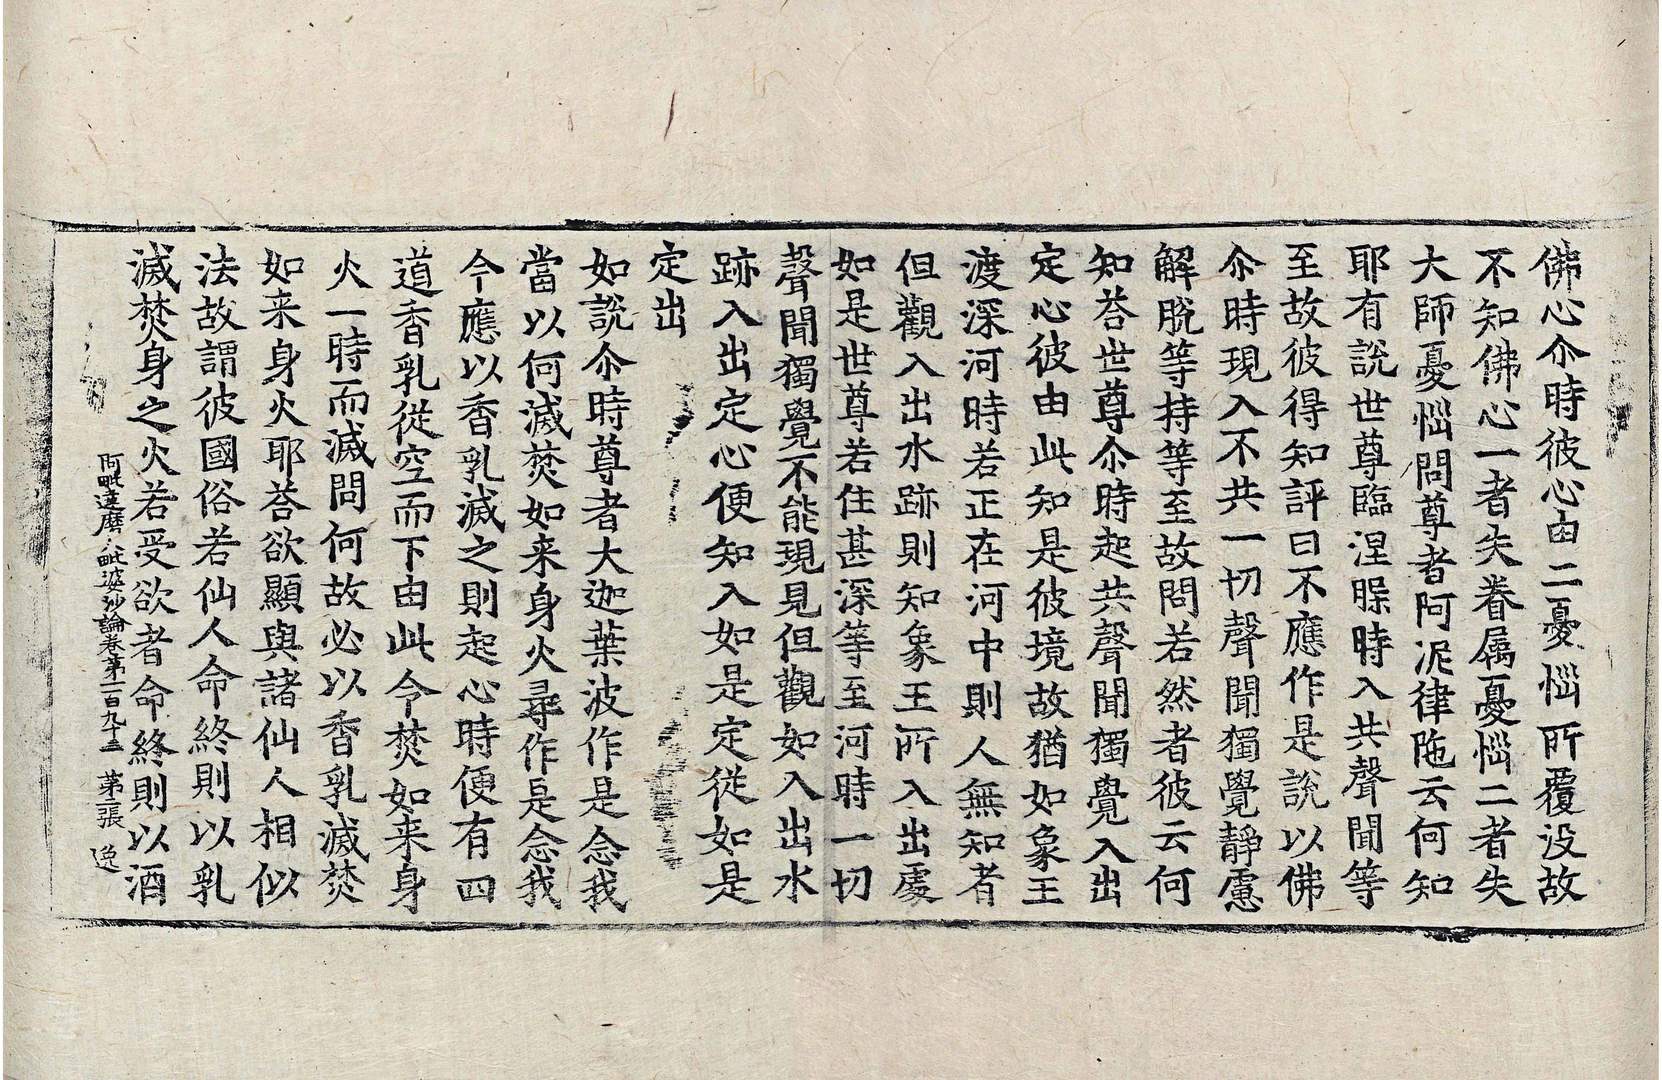 佛心尒時彼心由二憂惱所覆没故
不知佛心一者失眷属憂惱二者失
大師憂惱問尊者阿泥律陁云何知
耶有說世尊臨涅槃時入共聲聞等
至故彼得知評曰不應作是説以佛
尒時現入不共一切聲聞獨覺靜慮
解脫等持等至故問若然者彼云何
知荅世尊尒時起共聲聞獨覺入出
定心彼由此知是彼境故猶如象王
渡深河時若正在河中則人無知者
但觀入出水跡則知象王所入出處
如是世尊若住甚深等至河時一切
聲聞獨覺不能現見但觀如入出水
跡入出定心便知入如是定從如是
定出
如說尒時尊者大迦葉波作是念我
當以何滅焚如来身火尋作是念我
今應以香乳滅之則起心時便有四
道香乳從空而下由此令焚如来身
火一時而滅問何故必以香乳滅焚
如来身火耶荅欲顯與諸仙人相似
法故謂彼國俗若仙人命終則以乳
滅焚身之火若受欲者命終則以酒
阿毗達磨毗婆沙論卷第一百九十二 第二張